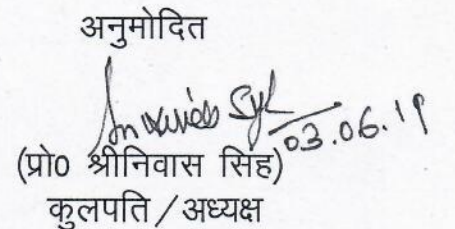 अनुमोदित
03.06.19
(प्रो0 श्रीनिवास सिंह)
कुलपति/अध्यक्ष